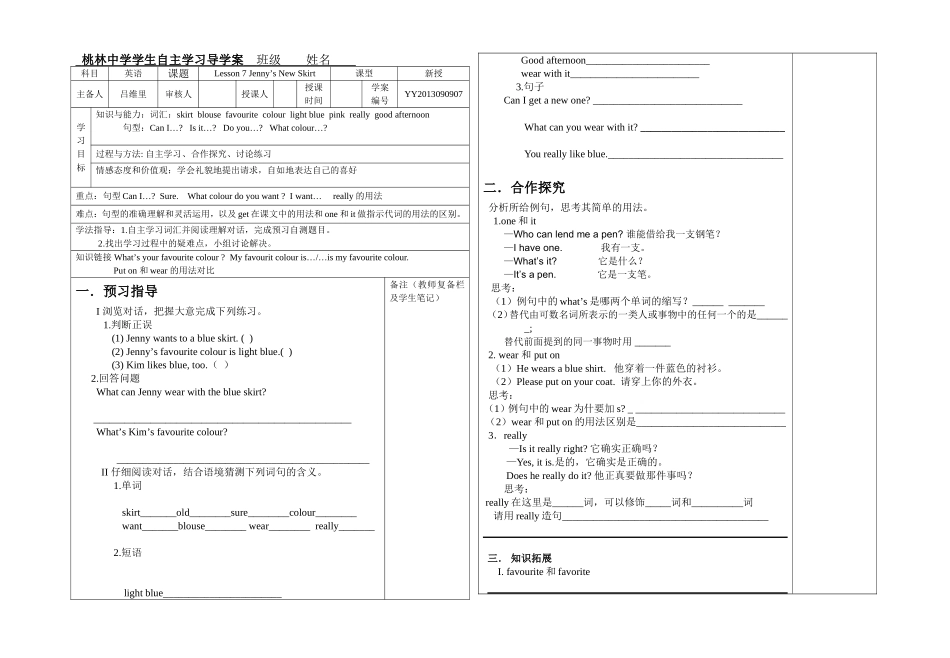 桃林中学学生自主学习导学案 班级____姓名____
科目 英语 课题 Lesson 7 Jenny’s New Skirt 课型 新授
主备人 吕维里 审核人 授课人 授课时间 学案编号 YY2013090907
学习目标
知识与能力：词汇：skirt blouse favourite colour light blue pink really good afternoon
句型：Can I…? Is it…? Do you…? What colour…?
过程与方法: 自主学习、合作探究、讨论练习
情感态度和价值观：学会礼貌地提出请求，自如地表达自己的喜好
重点：句型 Can I…? Sure. What colour do you want ? I want… really 的用法
难点：句型的准确理解和灵活运用，以及 get 在课文中的用法和 one 和 it 做指示代词的用法的区别。
学法指导：1.自主学习词汇并阅读理解对话，完成预习自测题目。
2.找出学习过程中的疑难点，小组讨论解决。
知识链接 What’s your favourite colour ? My favourit colour is…/…is my favourite colour.
Put on 和 wear 的用法对比
一．预习指导
I 浏览对话，把握大意完成下列练习。
1.判断正误
(1) Jenny wants to a blue skirt. ( )
(2) Jenny’s favourite colour is light blue.( )
(3) Kim likes blue, too.（ ）
2.回答问题
What can Jenny wear with the blue skirt?
____________________
What’s Kim’s favourite colour?
____________________
II 仔细阅读对话，结合语境猜测下列词句的含义。
1.单词
skirt_______old________sure________colour________
want_______blouse________ wear________ really_______
2.短语
light blue_______________________
备注（教师复备栏及学生笔记）
Good afternoon________________________
wear with it_________________________
3.句子
Can I get a new one? _____________________________
What can you wear with it? ____________________________
You really like blue.__________________________________
二．合作探究
分析所给例句，思考其简单的用法。
1.one 和 it
—Who can lend me a pen? 谁能借给我一支钢笔？
—I have one. 我有一支。
—What’s it? 它是什么？
—It’s a pen. 它是一支笔。
思考：
（1）例句中的 what’s 是哪两个单词的缩写？______ _______
（2）替代由可数名词所表示的一类人或事物中的任何一个的是______
_;
替代前面提到的同一事物时用 _______
2. wear 和 put on
（1）He wears a blue shirt. 他穿着一件蓝色的衬衫。
（2）Please put on your coat. 请穿上你的外衣。
思考：
（1）例句中的 wear 为什要加 s? _ _____________________________
（2）wear 和 put on 的用法区别是_____________________________
3．really
—Is it really right? 它确实正确吗？
—Yes, it is.是的，它确实是正确的。
Does he really do it? 他正真要做那件事吗？
思考：
really 在这里是______词，可以修饰_____词和__________词
请用 really 造句________________________________________
三． 知识拓展
I. favourite 和 favorite